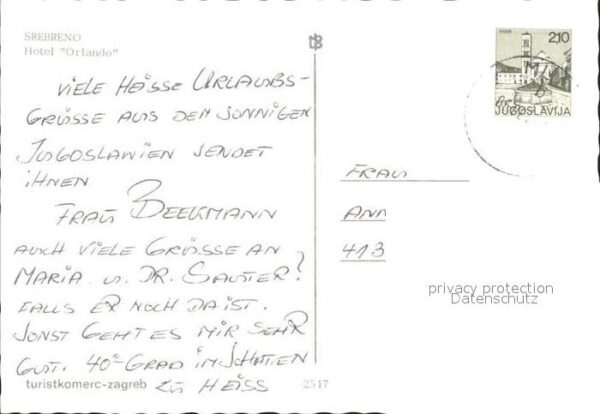 SREBRENO
Hotel "Orlando"
VIELE HEISSE URLAUBS-
GRÜSSE AUS DEN SONNIGEN
JUGOSLAWIEN SENDET
IHNEN
FRAU BEEKMANN
AUCH VIELE GRÜSSE AN
MARIA u. DR. SAUTER?
FALLS ER NOCH DA IST.
SONST GEHT ES MIR SEHR
GUT. 40°-GRAD IM SCHATTEN
ZU HEISS
turistkomerc-zagreb
2547
2,10
JUGOSLAVIJA
FRAU
ANN
413
privacy protection
Datenschutz